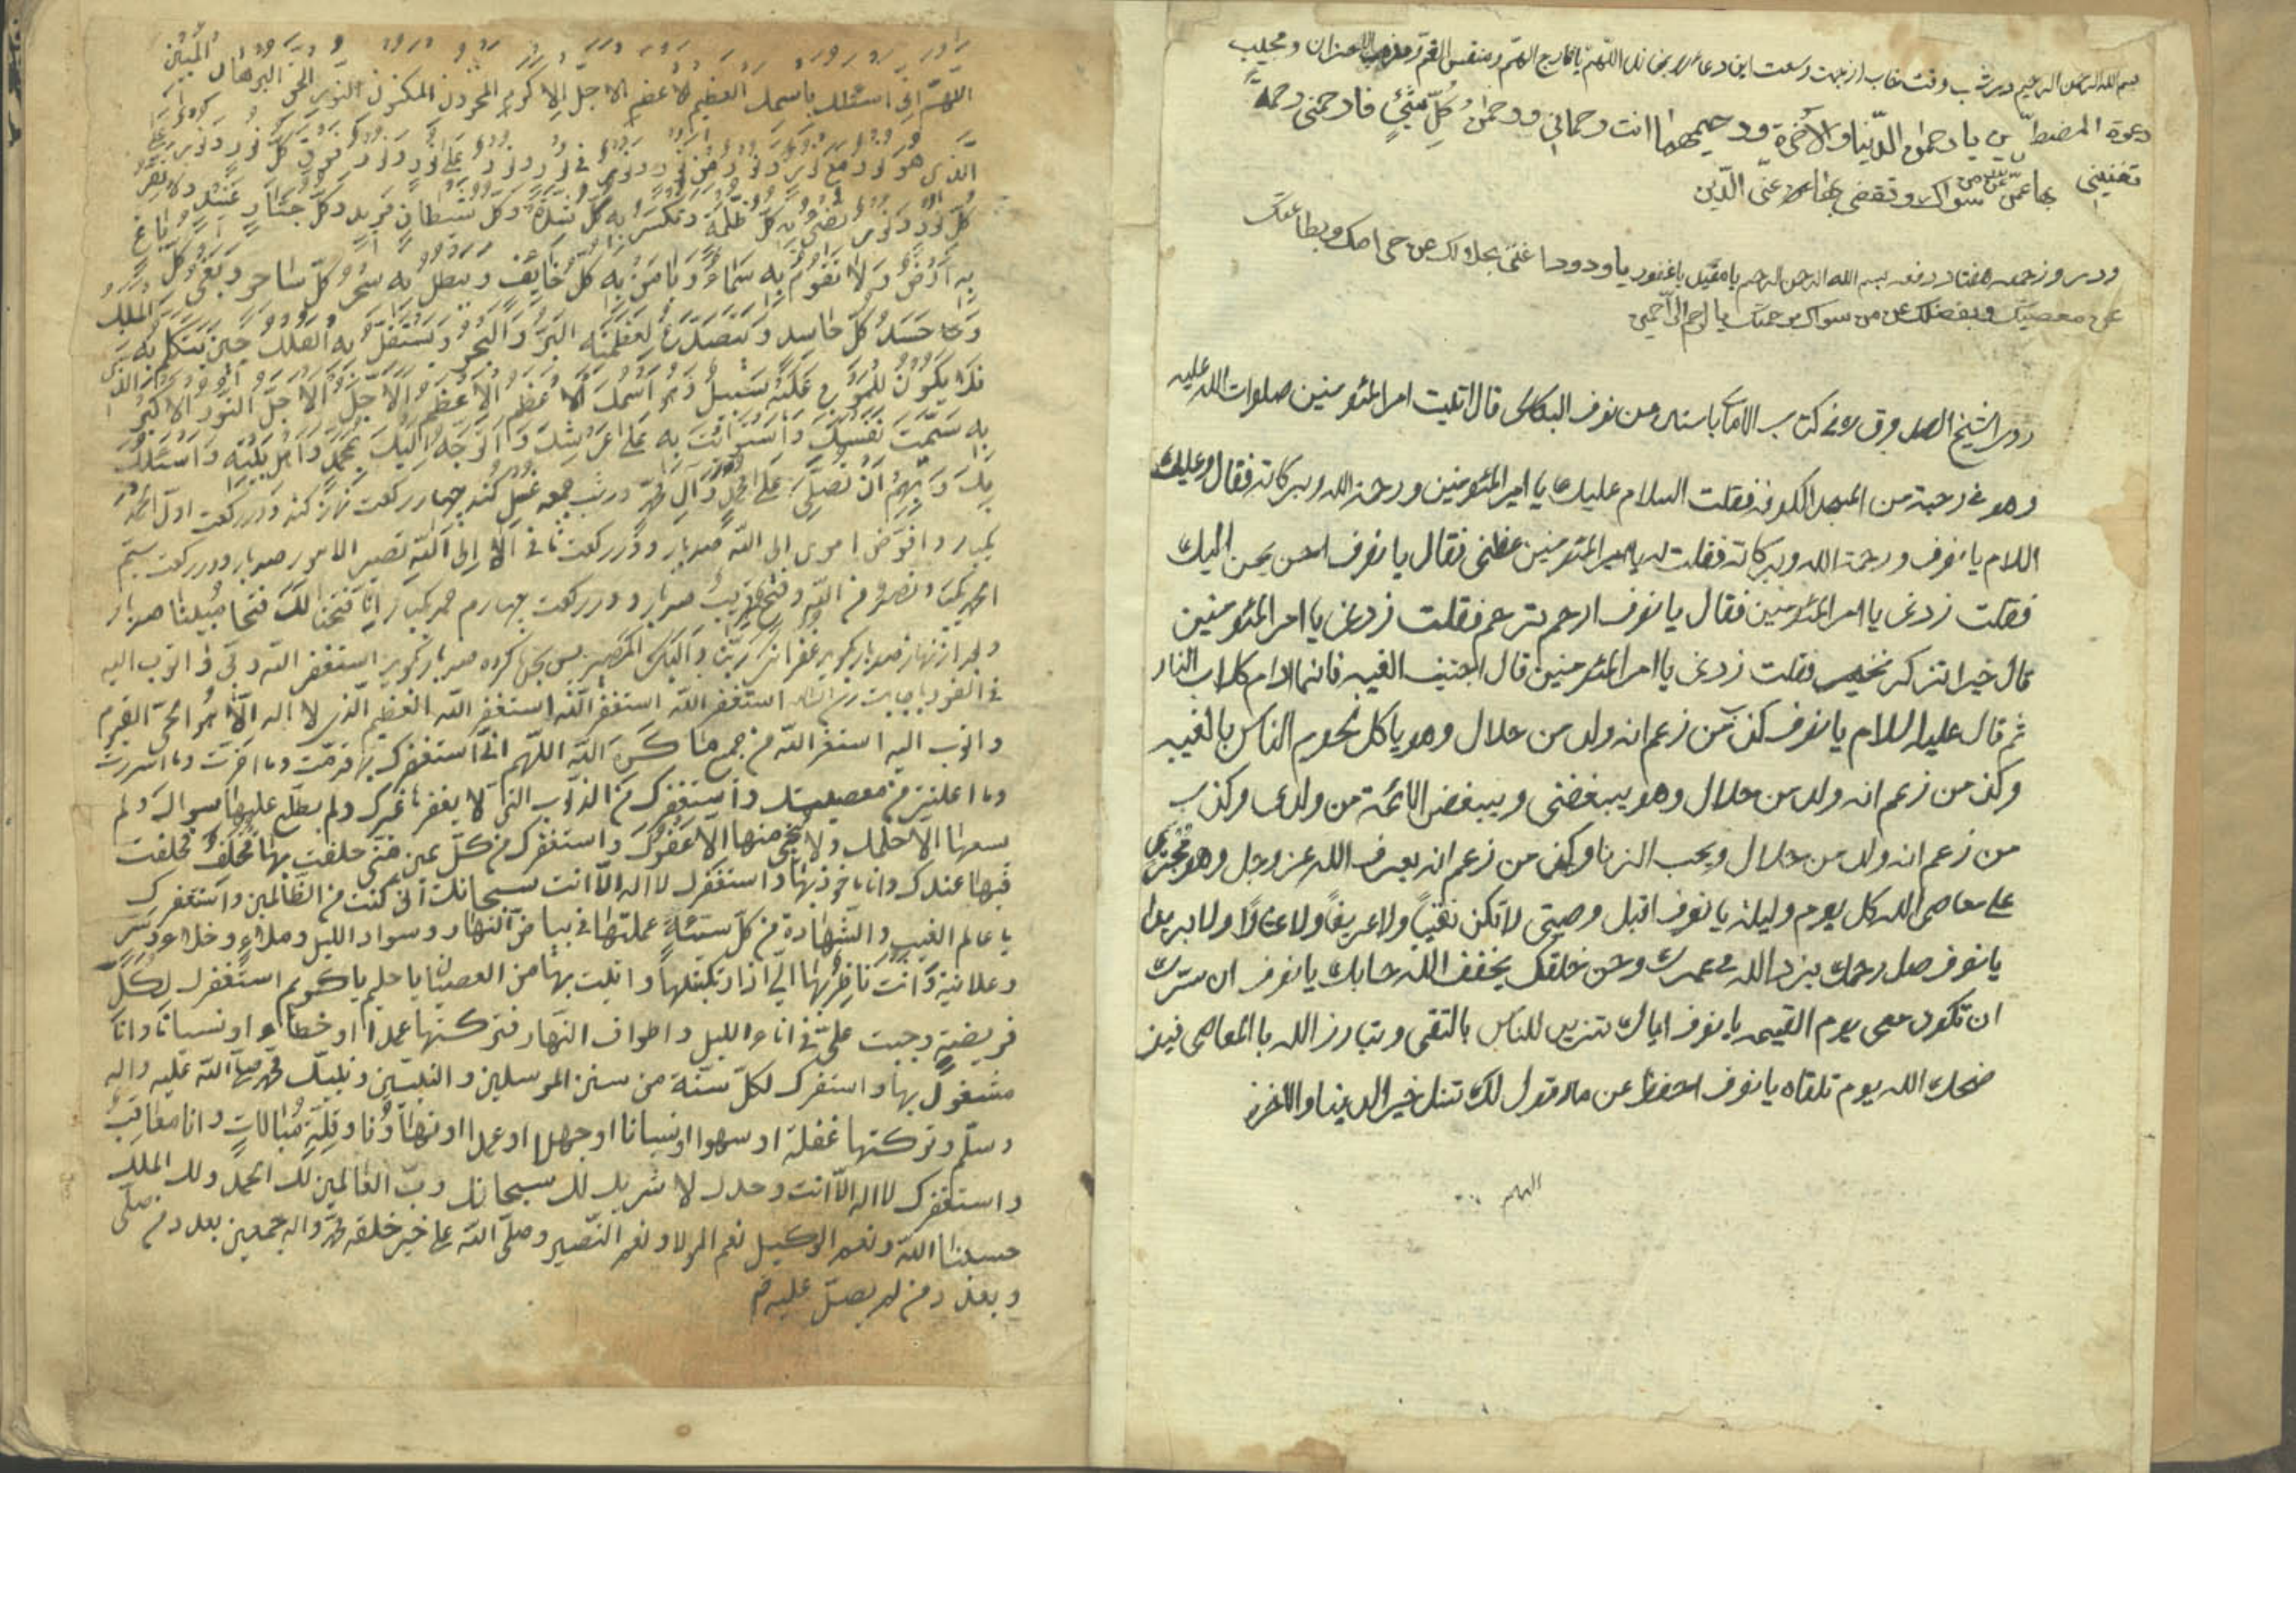 بسم الله الرحمن الرحيم در شب وقت خاب از جهت وسعت اين دعا بخاند اللّهمّ يا فارج الهمّ ومنفس الغمّ ومذهب الاحزان ومجيب
دعوة المضطرّين يا رحمن الدّنيا والأخرة ورحيمهما انت رحماني ورحمن كلّ شئٍ فارحمنى رحمةً
تغنيني بها عمّن سواك وتقضى بها عنّى الدّين
ودر روز جمعه هفتاد دفعه بسم الله الرحمن الرحيم يا مقيل يا غفور يا ودود اغننى بحلالك عن حرامك وبطاعتك
عن معصيتك وبفضلك عن من سواك برحمتك يا ارحم الرّاحمين
روى الشيخ الصدوق ره فى كتاب الامالى باسناده عن نوف البكالى قال اتليت امير المئومنين صلوات الله عليه
وهو فى رحبة من المسجد الكوفه فقلت السلام عليك يا امير المئومنين ورحمة الله وبركاته فقال وعليك
السلام يا نوف ورحمة الله وبركاته فقلت له يا امير المئومنين عظنى فقال يا نوف احسن يحسن اليك
فقلت زدنى يا امير المئومنين فقال يا نوف ارحم ترحم فقلت زدنى يا امير المئومنين
قال خيرا تذكر بخير فقلت زدنى يا امير المئومنين قال اجتنب الغيبه فانها ادام كلاب النار
ثم قال عليه السلام يا نوف كذب من زعم انه ولد من حلال وهو يا كل لحوم الناس بالغيبه
وكذب من زعم انه ولد من حلال وهو يبغضنى ويبغض الائمة من ولدى وكذب
من زعم انه ولد من حلال ويحب الزنا وكذب من زعم انه يعرف الله عز وجل وهو مجترى
على معاصى الله كل يوم وليلة يا نوف اقبل وصيتى لا تكن نقيباً ولا عريفاً ولا عشاراً ولا بريدا
يا نوف صل رحمك يزد الله فى عمرك وحسن خلقك يخفف الله حسابك يا نوف ان سرك
ان تكون معى يوم القيمه يا نوف اياك تتزين للناس بالتقى وتبارز الله بالمعاصى فيذ
ضحك الله يوم تلقاه يا نوف احفظ عن ما اقول لك تنل خير الدينا والاخره
اللهم
اللهمّ انى اسئلك باسمك العظيم الاعظم الاجلّ الاكرم المخزون المكنون النور الحق البرهان المبين
الّذى هو نور مع نور ونور من نور ونور فى نور ونور على نور ونور فوق كلّ نور ونور
كلّ نور ونور تضئ به كلّ ظلمة وتكسر به كلّ شدّة وكلّ شيطان مريد وكلّ جبّار عنيد ولا تقر
به ارض ولا تقوم به سماء ويامن به كلّ خايف ويبطل به سحر كلّ ساحر وبغى كلّ باغ
وحسد كلّ حاسد ويتصدّع لعظمته البرّ والبحر ويستقلّ به الفلك حين يتكلم به الملك
فلا يكون للموج عليه سبيل وهو اسمك الاعظم الاعظم الاجلّ الاجلّ النور الاكبر الذى
به سمّيت نفسك واستويت به على عرشك واتوجّه اليك بمحمد واهل بيته واسئلك
بك وبهم ان تصلّى على محمد وآل محمد در شب جمعه غسل كند چهار ركعت نماز كند ودر ركعت اول الحمد
يكبار وافوّض امرى الى الله صد بار ودر ركعت ثانى الا الى الله تصير الامور صد بار ودر ركعت سيم
الحمد يكبار ونصر من الله وفتح قريب صد بار ودر ركعت چهارم حمد يكبار انّا فتحنا لك فتحا مبينا صد بار
وبعد از نماز صد بار بگويد غفرانك ربّنا واليك المصير پس بجده كرده صد بار بگويد استغفر الله ربى واتوب اليه
فى الفور باجابت رسد انشاء الله استغفر الله استغفر الله استغفر الله العظيم الذى لا اله الّا هو الحىّ القيوم
واتوب اليه استغفر الله من جميع ما كره الله اللّهم انّى استغفرك بما قدّمت وما اخّرت وما اسررت
وما اعلنت من معصيتك واستغفرك من الذنوب التى لا يغفرها غيرك ولم يطّلع عليها سواك ولم
يسعها الا حلمك ولا ينجى منها الا عفوك واستغفرك من كلّ يمين منّى حلفت بها فخلفت
فيها عندك وانا ماخوذ بها واستغفرك لا اله الّا انت سبحانك انّى كنت من الظالمين واستغفرك
يا عالم الغيب والشهادة من كلّ سيّئةٍ عملتها فى بياض النهار وسواد الليل وملاء وخلاء وسرّ
وعلانية وانت ناظر بها الىّ اذا ارتكبتها واتيت بها من العصيان يا حليم يا كريم استغفرك لكلّ
فريضةٍ وجبت علىّ فى اناء الليل واطراف النهار فتركتها عمدا او خطا او نسيانا وانا
مشغول بها واستغفرك لكلّ سنّة من سنن المرسلين والنبيّين ونبيّك محمد صلّى الله عليه واله
وسلّم وتركتها غفلة او سهوا او نسيانا او جهلا او عمدا او تهاونا وقلّة مبالات وانا معاقب
واستغفرك لا اله الّا انت وحدك لا شريك لك سبحانك ربّ العالمين لك الحمد ولك الملك
حسبنا الله ونعم الوكيل نعم المولا ونعم النصير وصلّى الله على خير خلقه محمد واله اجمعين بعدد من صلّى
وبعدد من لم يصلّ عليهم